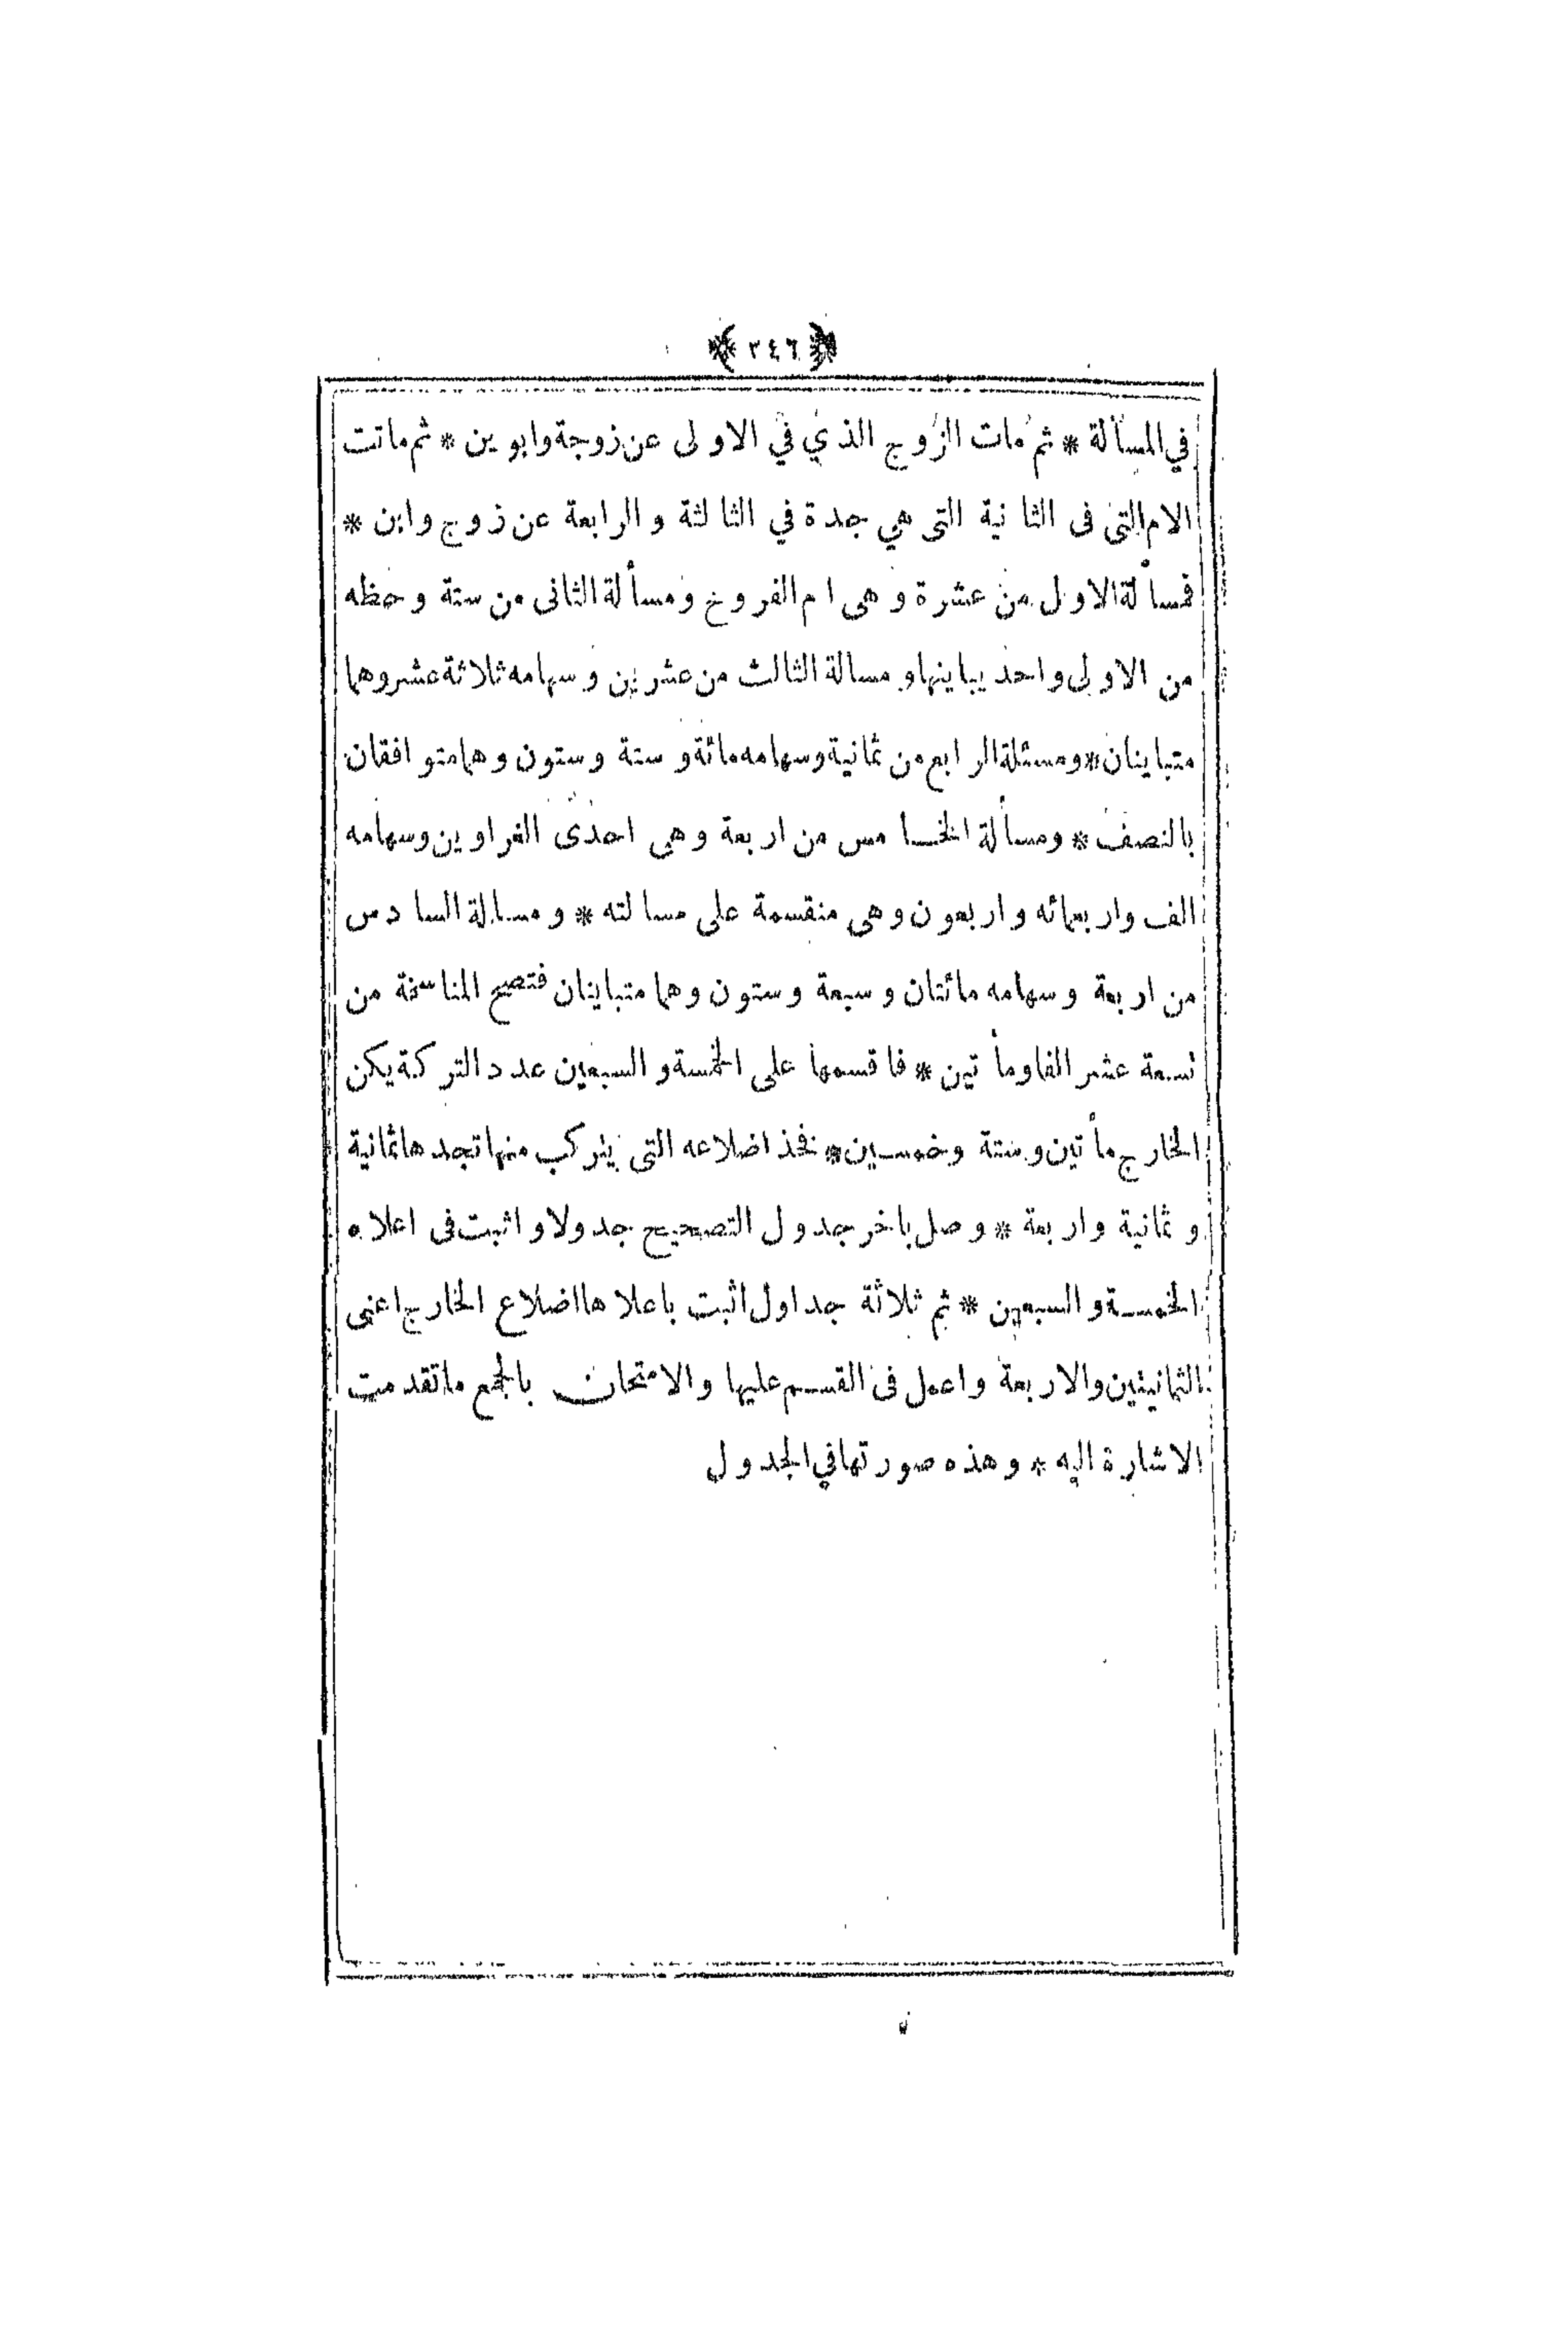 ﴿ ٣٤٦ ﴾
في المسألة * ثم مات الزوج الذي في الاولى عن زوجة وابوين * ثم ماتت
الام التى فى الثانية التى هي جدة في الثالثة والرابعة عن زوج وابن *
فمسألة الاول من عشرة وهى ام الفروخ ومسألة الثانى من ستة وحظه
من الاولى واحد يباينها ومسالة الثالث من عشرين وسهامه ثلاثة عشر وهما
متباينان * ومسئلة الرابع من ثمانية وسهامه مائة وستة وستون وهما متوافقان
بالنصف * ومسألة الخامس من اربعة وهى احدى الغراوين وسهامه
الف واربعمائه واربعون وهى منقسمة على مسالته * ومسالة السادس
من اربعة وسهامه مائتان وسبعة وستون وهما متباينان فتصح المناسخة من
تسعة عشر الفا ومأتين * فاقسمها على الخمسة والسبعين عدد التركة يكن
الخارج مأتين وستة وخمسين * فخذ اضلاعه التى يتركب منها تجدها ثمانية
وثمانية واربعة * وصل باخر جدول التصحيح جدولا واثبت فى اعلاه
الخمسة والسبعين * ثم ثلاثة جداول اثبت باعلاها اضلاع الخارج اعنى
الثمانيتين والاربعة واعمل فى القسم عليها والامتحان بالجمع ما تقدمت
الاشارة اليه * وهذه صورتها في الجدول